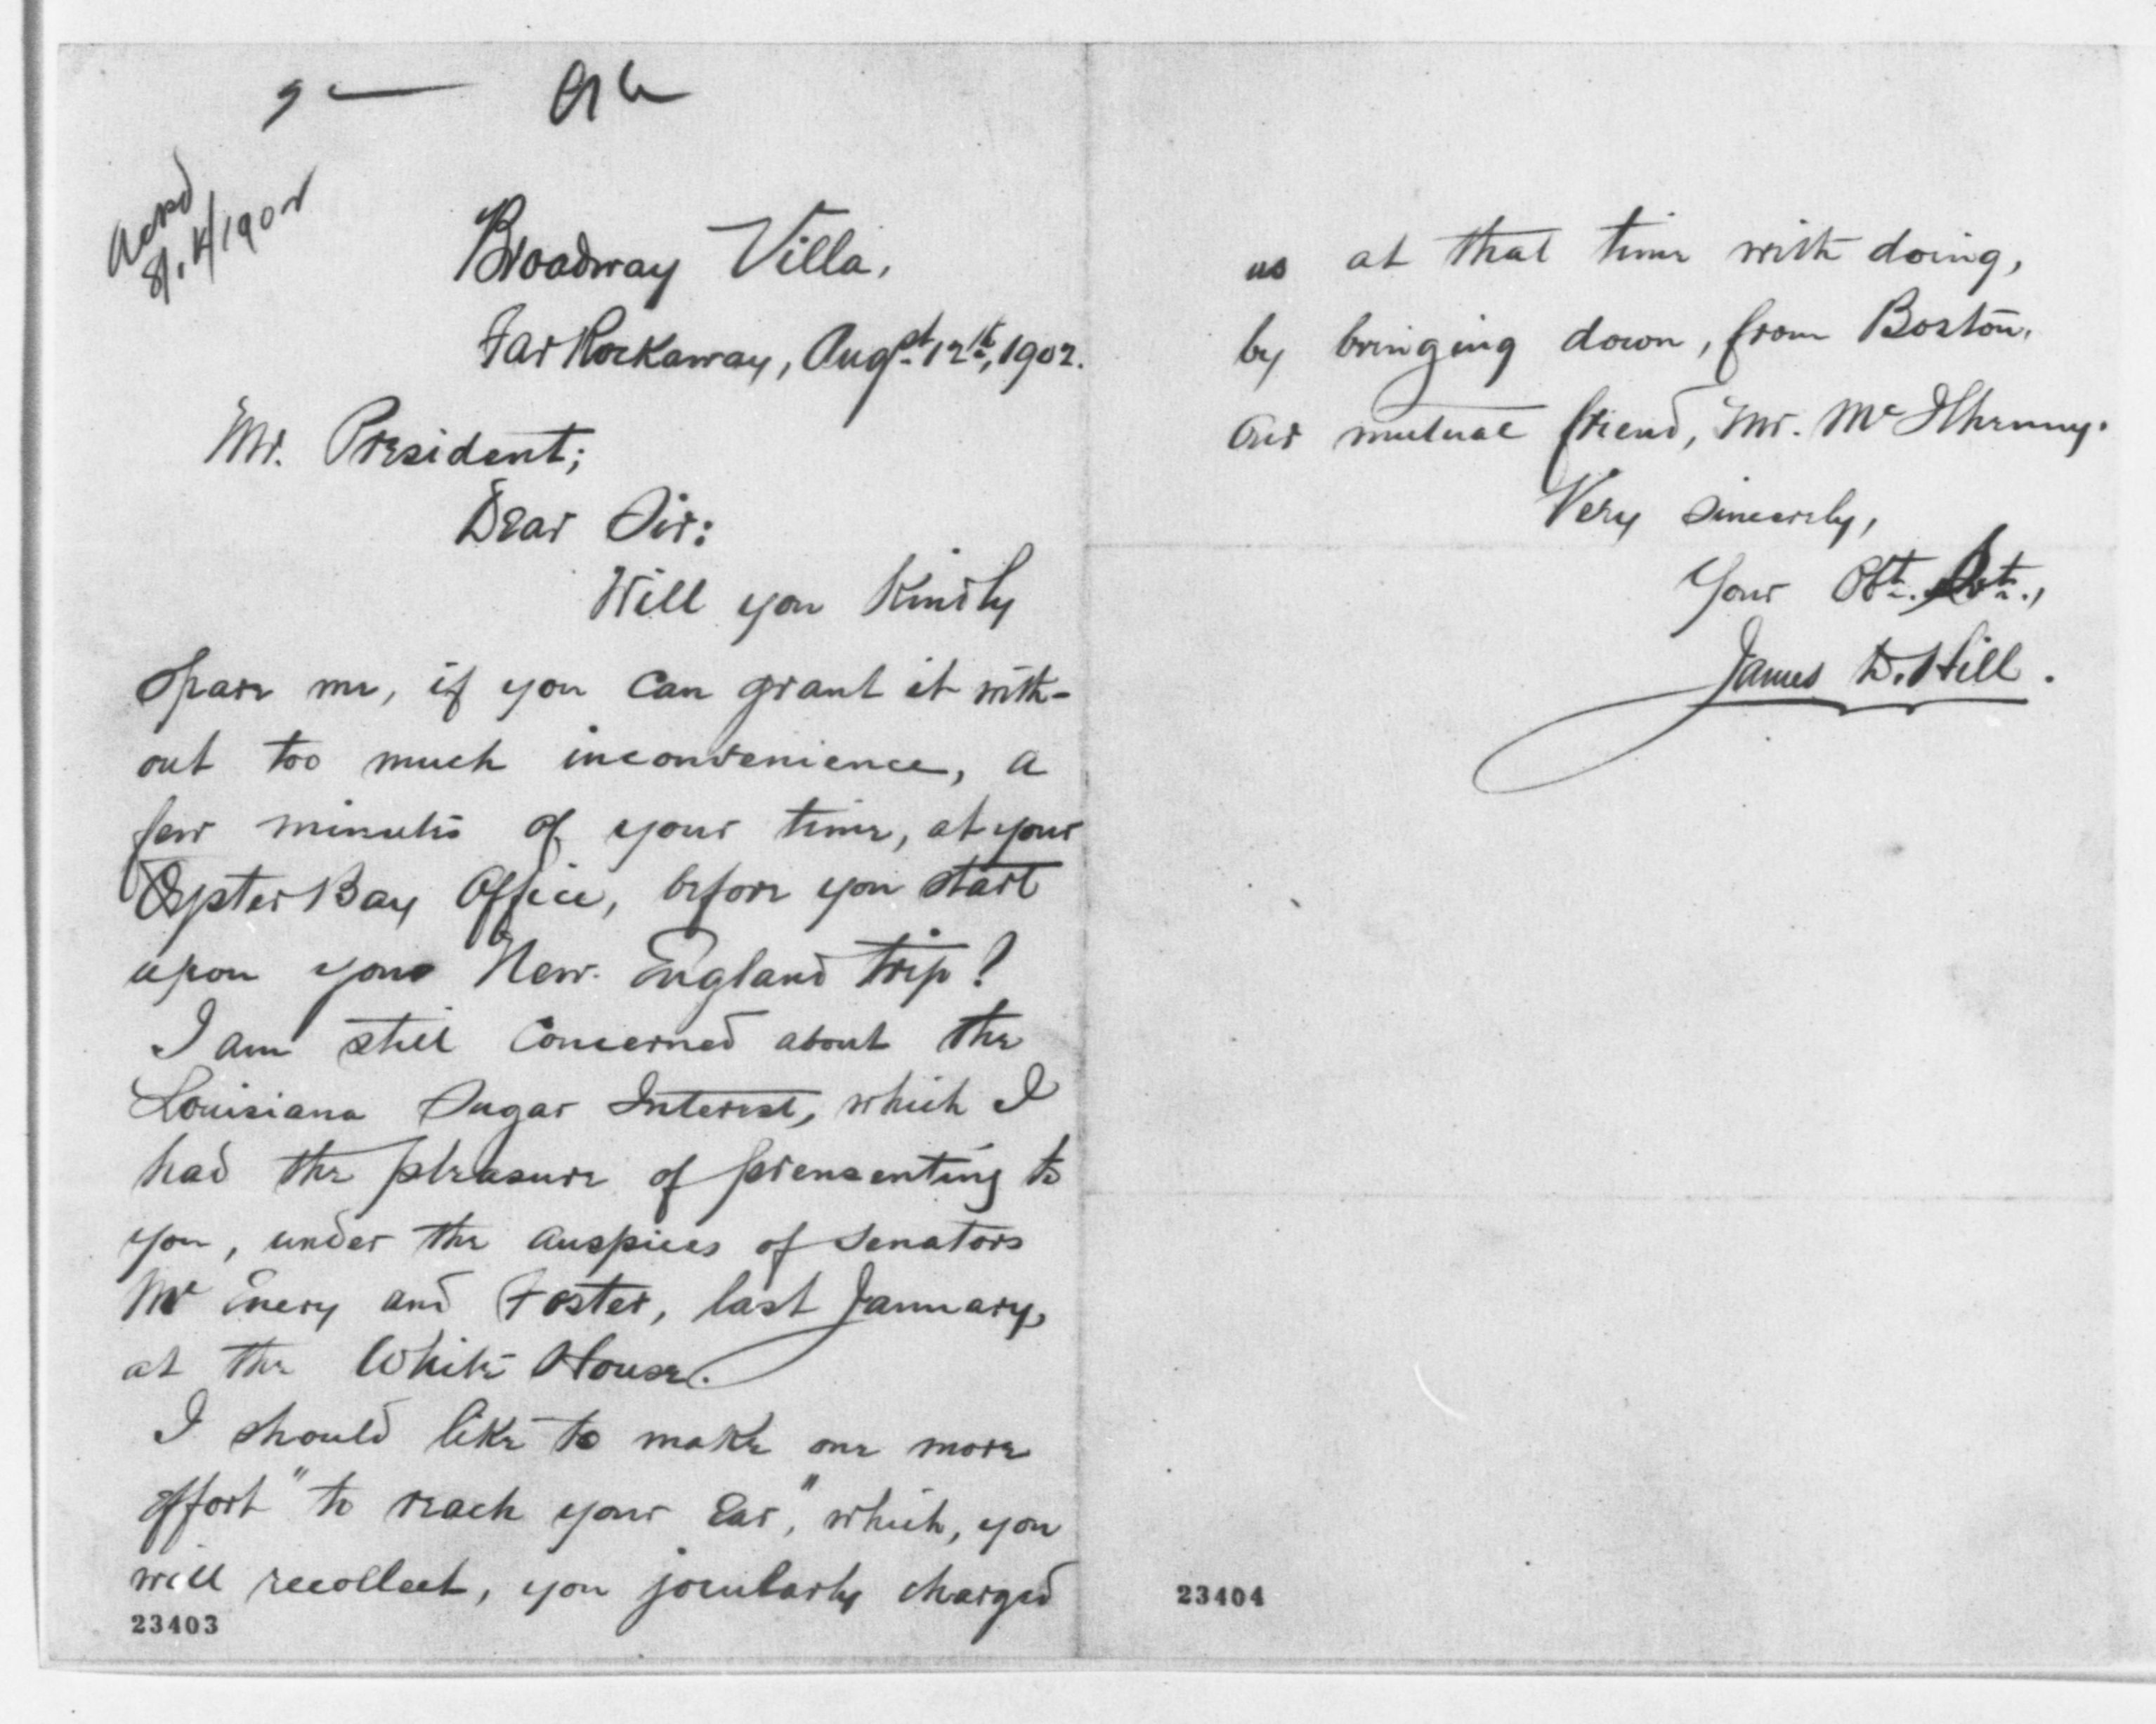 Ackd
8/14/1902
Broadway Villa,
Far Rockaway, Augst. 12th, 1902.
Mr. President;
Dear Sir:
Will you Kindly
Spare me, if you can grant it with-
out too much inconvenience, a
few minutes of your time, at your
Oyster Bay Office, before you start
upon your New England trip?
I am still concerned about the
Louisiana Sugar Interest, which I
had the pleasure of prensenting to
you, under the auspices of Senators
McEnery and Foster, last January,
at the White House.
I should like to make one more
effort "to reach your Ear," which, you
will recollect, you jocularly charged
23403
us at that time with doing,
by bringing down, from Boston,
Our mutual friend, Mr. McIlhenny.
Very sincerely,
Your Obt. Svt.,
James D. Hill.
23404